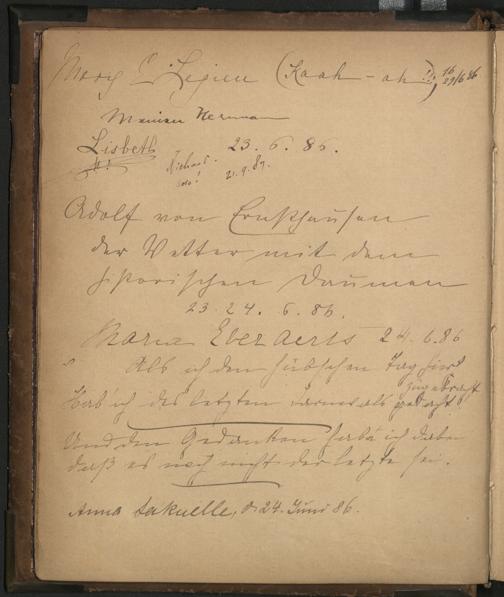 Mary E. Legien (Kaak-ak!!), 16/29/6 86
Meinen Hermann
Lisbeth 23. 6. 86.
Richard. 21.9.89.
Adolf von Ernsthausen
der Vetter mit dem
historischen Daumen
23. 24. 6. 86.
Maria Everaerts 24.6.86
Als ich den hübschen Tag hier zugebracht
Hab' ich des letzten als gedacht
Und den Gedanken habe ich dabei
daß es noch nicht der letzte sei.
Anna Lakuelle, d. 24. Juni 86.